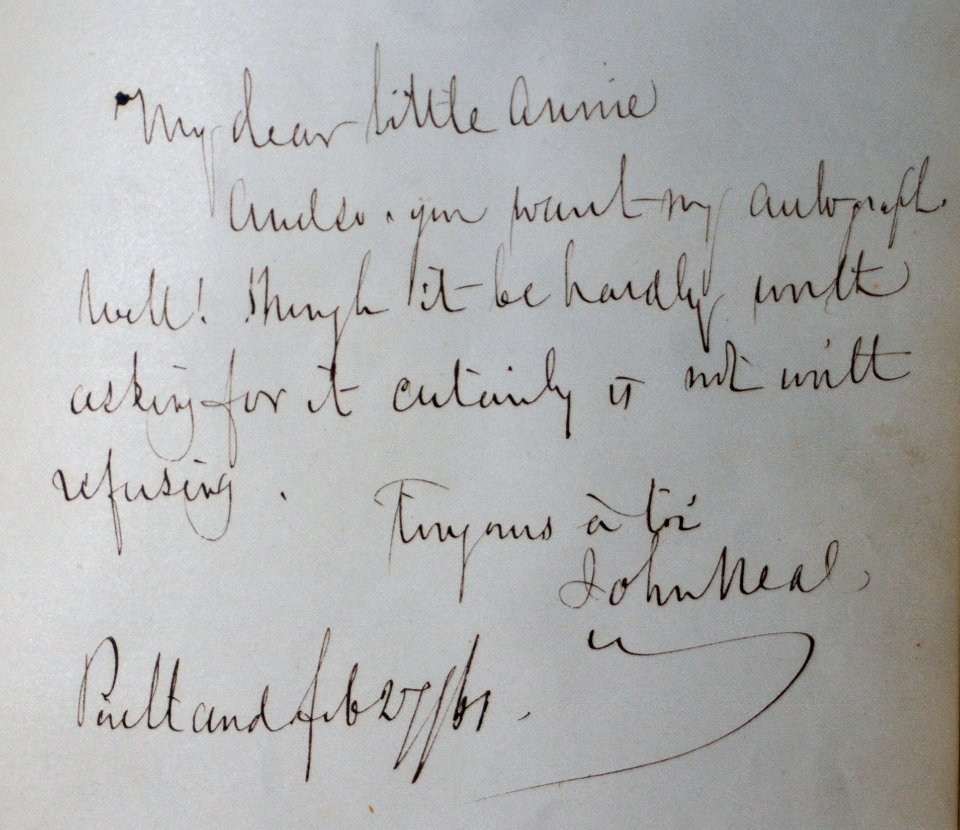 My dear little Annie
And so you want my autograph.
Well! Though it be hardly worth
asking for it certainly is not worth
refusing.
Toujours à toi
John Neal
Portland Feb 27/61.